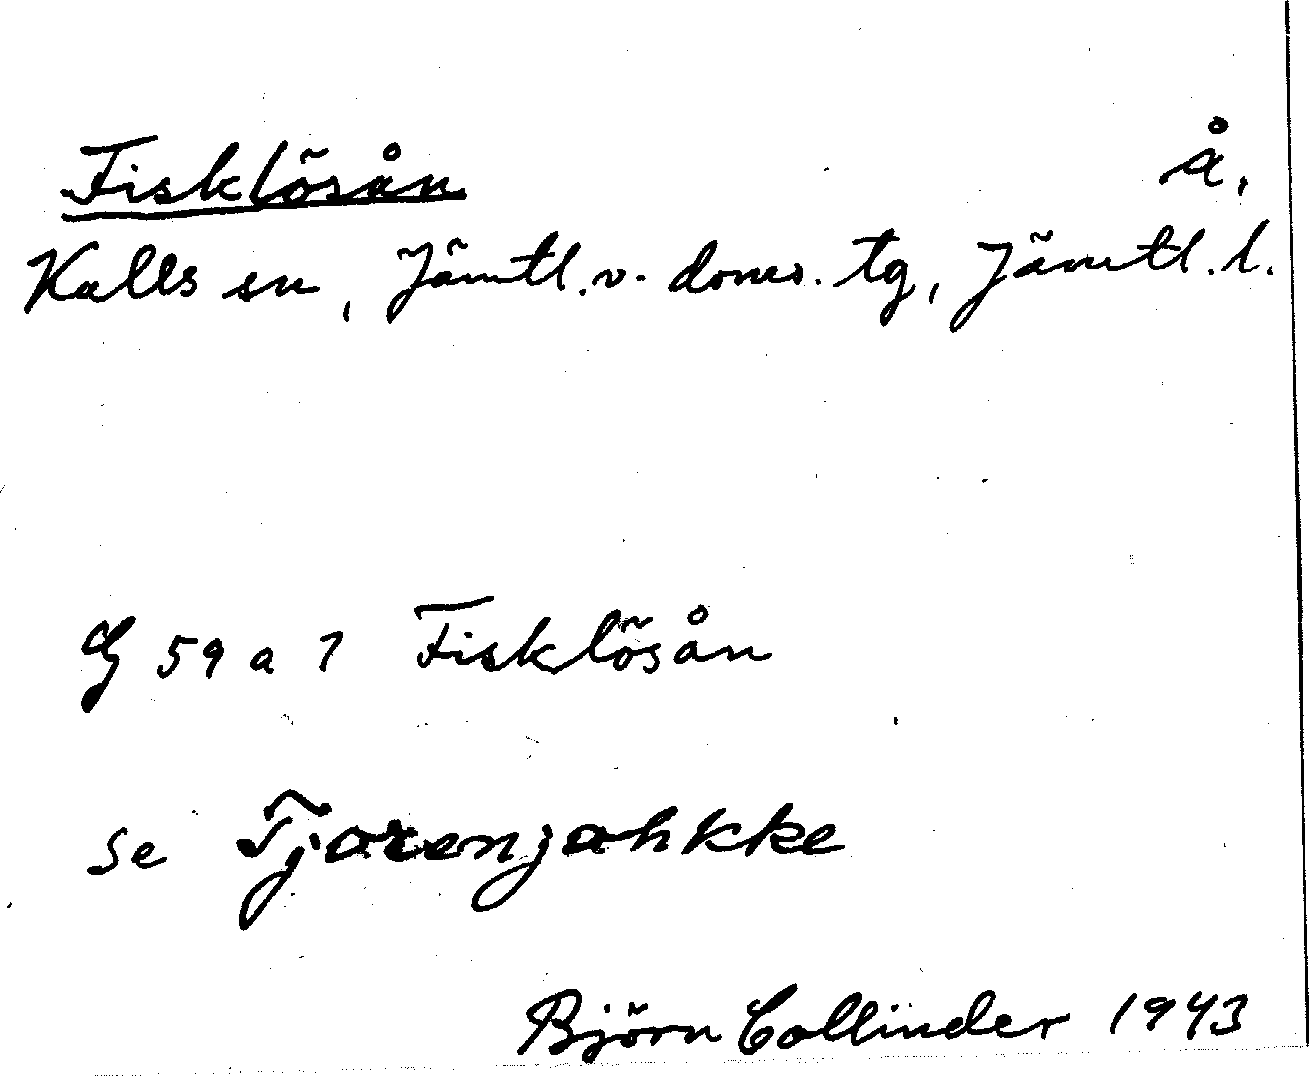 Fisklösån å.
Kalls sn, Jämtl. v. doms. tg, Jämtl. l.
G 59 a 7 Fisklösån
se Tjarenjahkke
Björn Collinder 1943